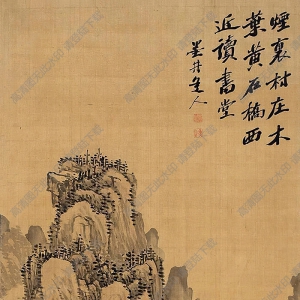 煙裏村庄木
葉黃石橋西
近讀書堂
墨井道人